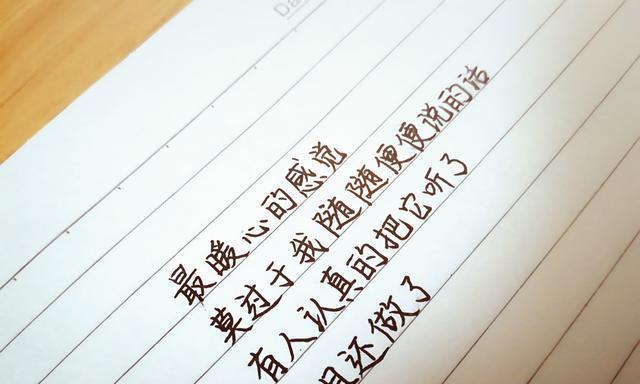 Da
最暖心的感觉
莫过于我随随便便说的话
有人认真的把它听了
且还做了